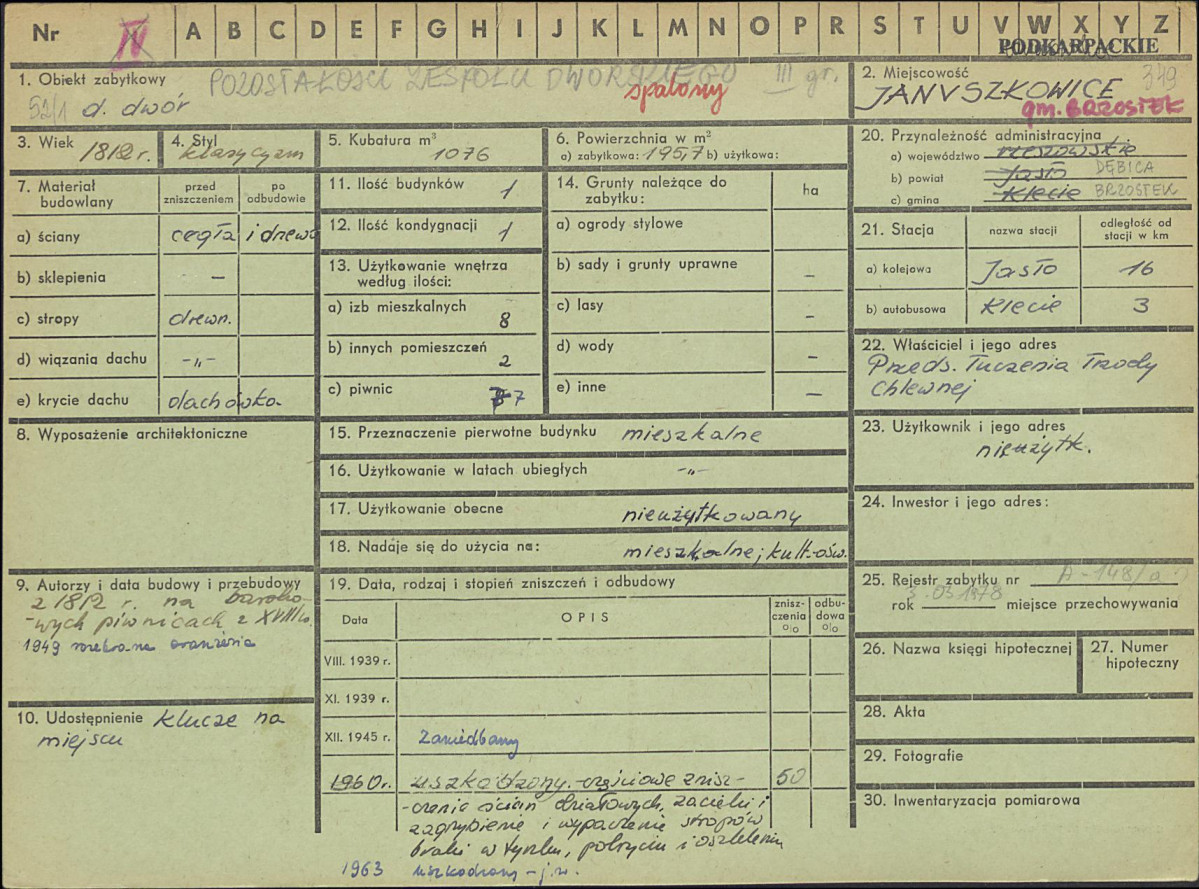 Nr IV A B C D E F G H I J K L M N O P R S T U V W X Y Z
PODKARPACKIE
1. Obiekt zabytkowy POZOSTAŁOŚCI ZESPOŁU DWORSKIEGO III gr.
52/1 d. dwór spalony
2. Miejscowość 349
JANUSZKOWICE
gm. BRZOSTEK
3. Wiek 1812 r.
4. Styl klasycyzm
5. Kubatura m³ 1076
6. Powierzchnia w m²
a) zabytkowa: 195,7 b) użytkowa:
20. Przynależność administracyjna
a) województwo rzeszowskie
b) powiat Jasło DĘBICA
c) gmina Klecie BRZOSTEK
7. Materiał budowlany
przed zniszczeniem
po odbudowie
a) ściany cegła i drewno
b) sklepienia —
c) stropy drewn.
d) wiązania dachu -„-
e) krycie dachu dachówka
11. Ilość budynków 1
12. Ilość kondygnacji 1
13. Użytkowanie wnętrza
według ilości:
a) izb mieszkalnych 8
b) innych pomieszczeń 2
c) piwnic 7
14. Grunty należące do
zabytku:
ha
a) ogrody stylowe
b) sady i grunty uprawne —
c) lasy —
d) wody —
e) inne —
21. Stacja
nazwa stacji
odległość od
stacji w km
a) kolejowa Jasło 16
b) autobusowa Klecie 3
22. Właściciel i jego adres
Przeds. Tuczenia Trzody
Chlewnej
8. Wyposażenie architektoniczne
15. Przeznaczenie pierwotne budynku mieszkalne
16. Użytkowanie w latach ubiegłych -„-
17. Użytkowanie obecne nieużytkowany
18. Nadaje się do użycia na: mieszkalne, kult-ośw.
23. Użytkownik i jego adres
nieużytk.
24. Inwestor i jego adres:
9. Autorzy i data budowy i przebudowy
z 1812 r. na baroko-
-wych piwnicach z XVIII w.
1949 rozebrano oranżerię
10. Udostępnienie klucze na
miejscu
19. Data, rodzaj i stopień zniszczeń i odbudowy
Data
OPIS
znisz-
czenia
%
odbu-
dowa
%
VIII. 1939 r.
XI. 1939 r.
XII. 1945 r. zaniedbany
1960 r. uszkodzony. -częściowe znisz- 50
-czenie ścian działowych, zacieki i
zagrzybienie i wypaczenie stropów
braki w tynku, pokryciu i oszkleniu
1963 uszkodzony - j.w.
25. Rejestr zabytku nr A-148/a
3.03.1978
rok miejsce przechowywania
26. Nazwa księgi hipotecznej
27. Numer
hipoteczny
28. Akta
29. Fotografie
30. Inwentaryzacja pomiarowa